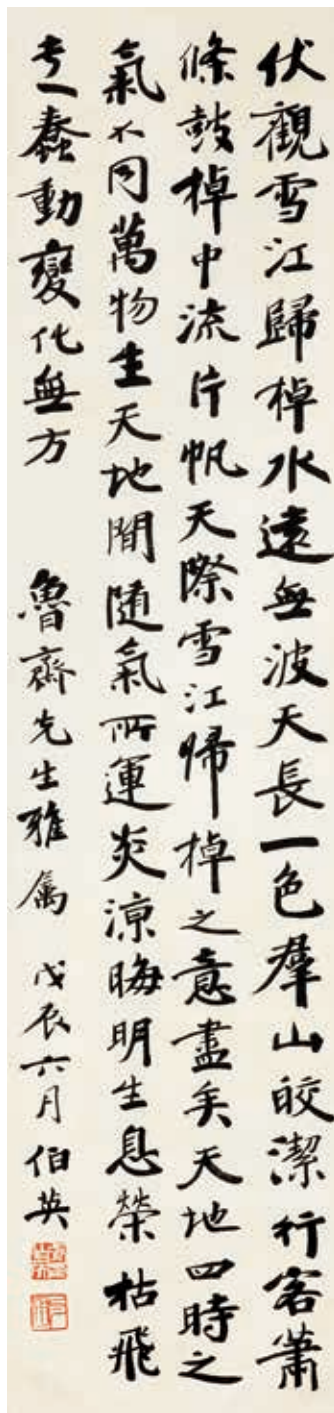 伏觀雪江歸棹水遠無波天長一色羣山皎潔行客蕭
條鼓棹中流片帆天際雪江歸棹之意盡矣天地四時之
氣不同萬物生天地間随氣所運炎涼晦明生息榮枯飛
走蠢動變化無方
魯齋先生雅属 戊辰六月 伯英